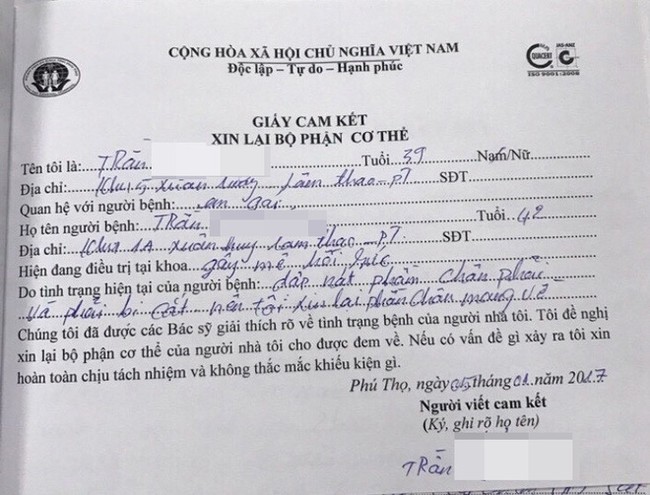 CỘNG HÒA XÃ HỘI CHỦ NGHĨA VIỆT NAM
Độc lập – Tự do – Hạnh phúc
QUACERT
JAS-ANZ
ISO 9001:2008
GIẤY CAM KẾT
XIN LẠI BỘ PHẬN CƠ THỂ
Tên tôi là: Trần Tuổi 39 Nam/Nữ
Địa chỉ: Xuân Huy Lâm Thao PT SĐT
Quan hệ với người bệnh: em gái
Họ tên người bệnh: Trần Tuổi: 42
Địa chỉ: Khu 1A Xuân Huy Lâm Thao PT SĐT
Hiện đang điều trị tại khoa gây mê hồi sức
Do tình trạng hiện tại của người bệnh: dập nát phần chân phải
và phải bị cắt nên tôi xin lại phần chân mang về
Chúng tôi đã được các Bác sỹ giải thích rõ về tình trạng bệnh của người nhà tôi. Tôi đề nghị
xin lại bộ phận cơ thể của người nhà tôi cho được đem về. Nếu có vấn đề gì xảy ra tôi xin
hoàn toàn chịu tách nhiệm và không thắc mắc khiếu kiện gì.
Phú Thọ, ngày 05 tháng 01 năm 2017
Người viết cam kết
(Ký, ghi rõ họ tên)
Trần